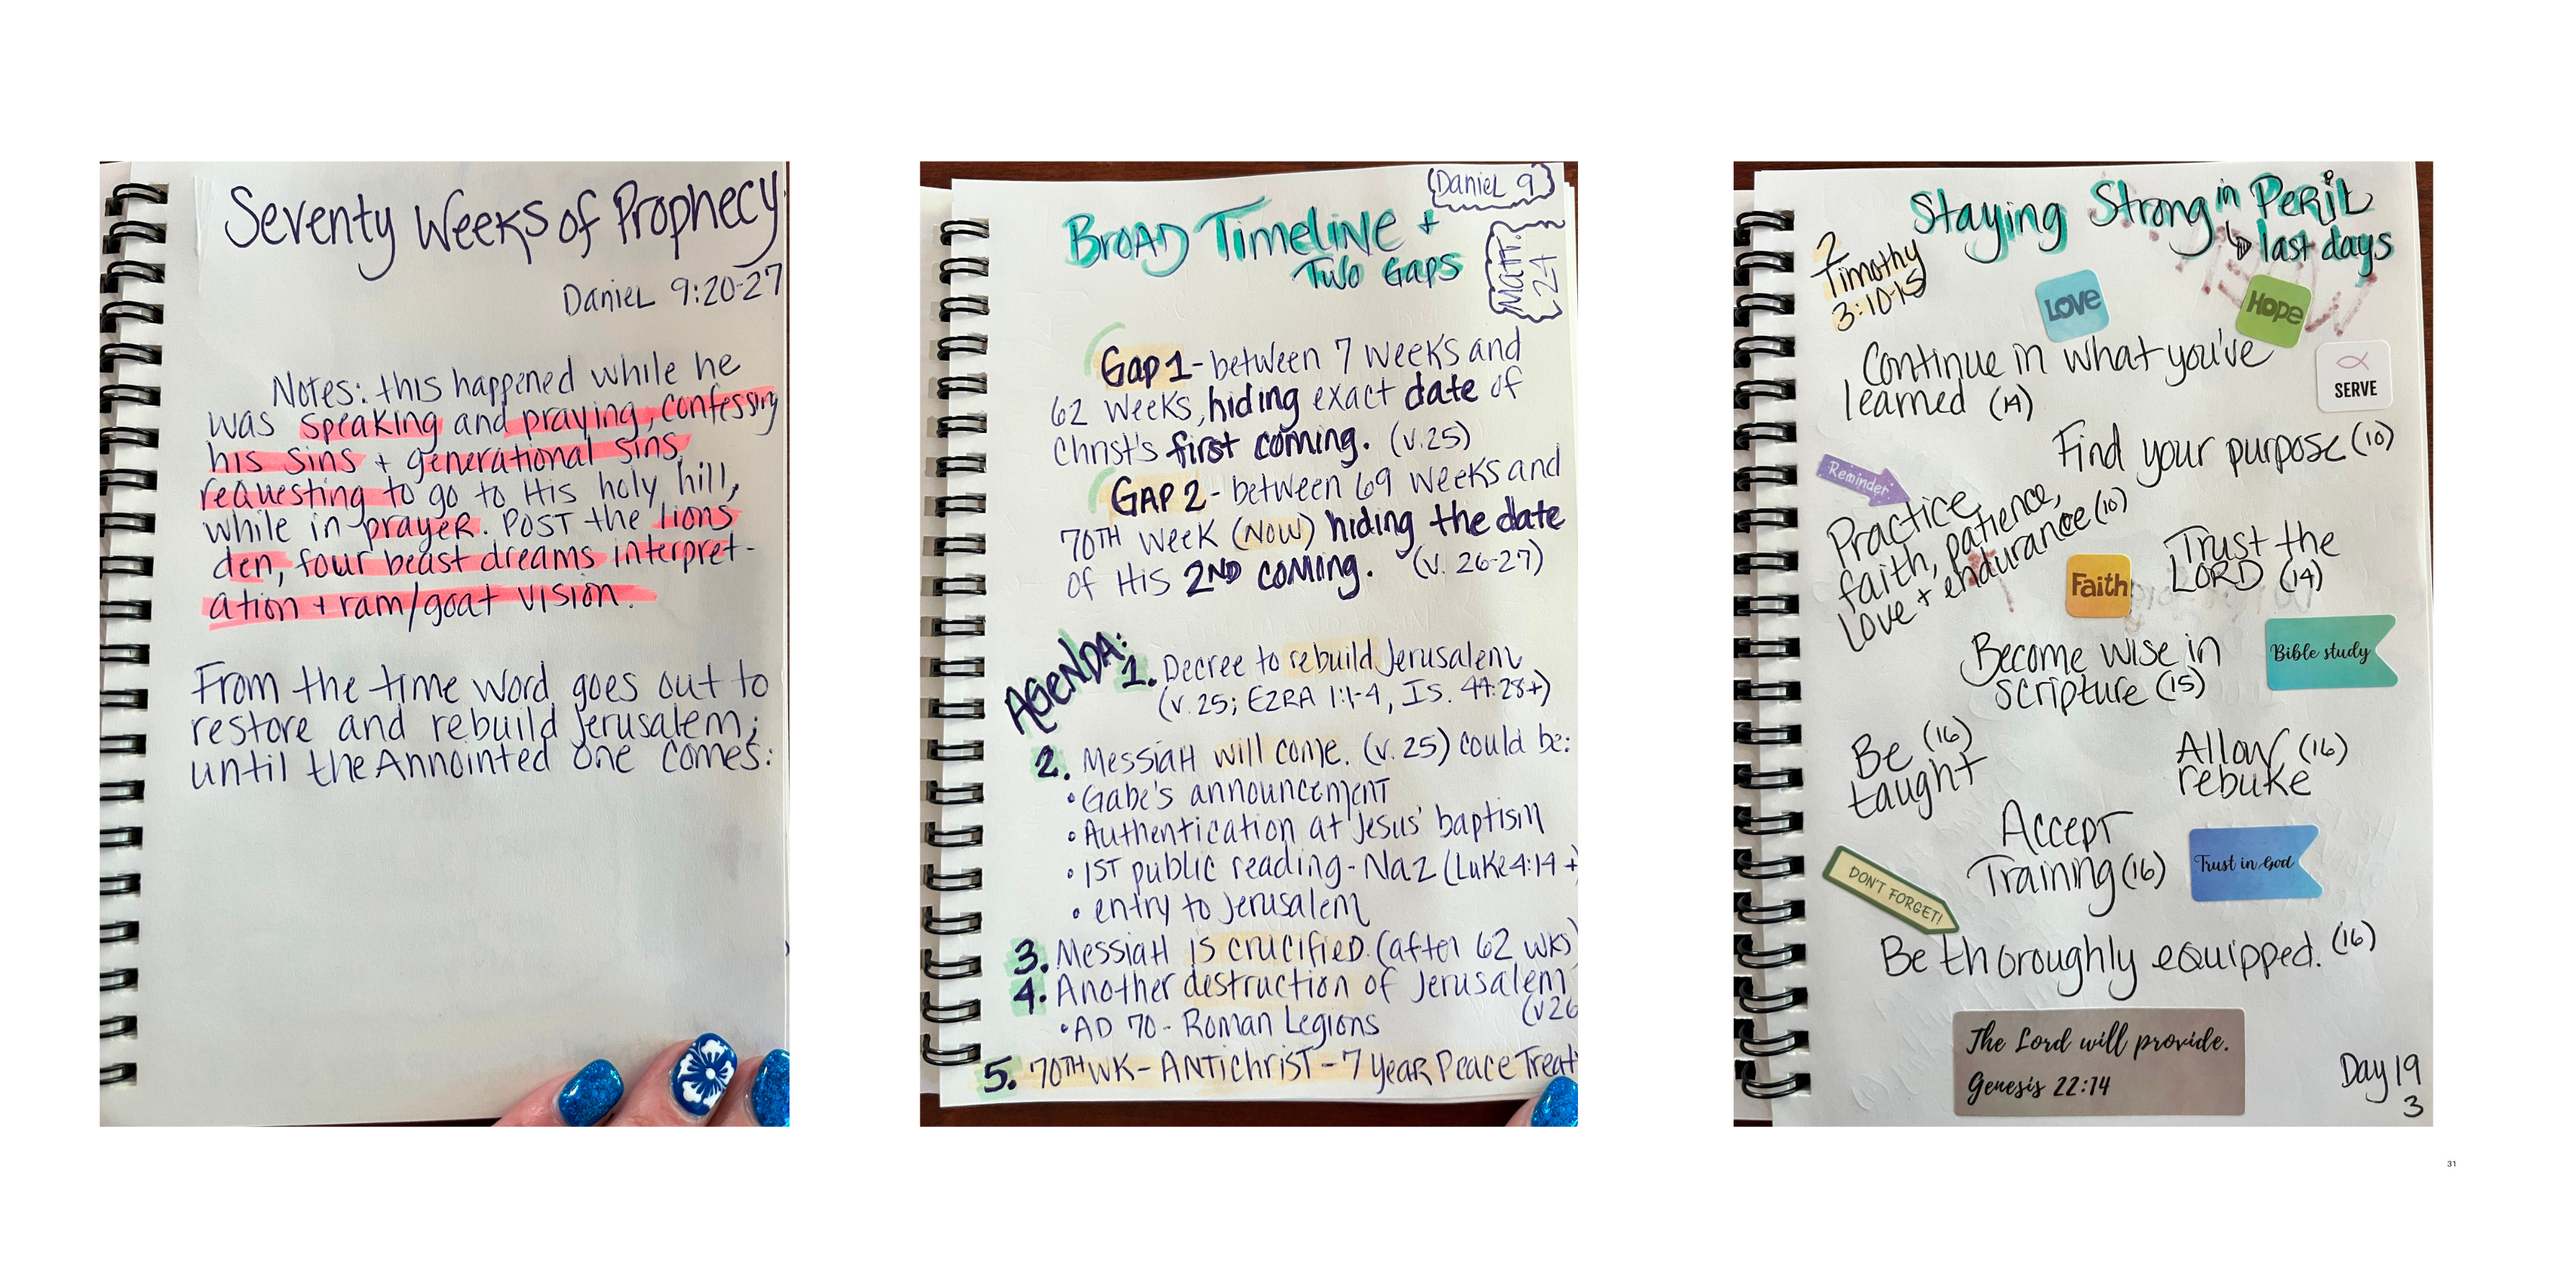 Seventy Weeks of Prophecy
Daniel 9:20-27
Notes: this happened while he
was speaking and praying, confessing
his sins + generational sins,
requesting to go to His holy hill,
while in prayer. Post the lions
den, four beast dreams interpret-
ation + ram/goat vision.
From the time word goes out to
restore and rebuild Jerusalem;
until the Annointed one comes:
Daniel 9
Matt. 24
Broad Timeline +
Two Gaps
Gap 1 - between 7 weeks and
62 weeks, hiding exact date of
Christ's first coming. (v.25)
GAP 2 - between 69 weeks and
70TH week (NOW) hiding the date
of His 2ND coming. (v. 26-27)
AGENDA:
1. Decree to rebuild Jerusalem
(v. 25; EZRA 1:1-4, Is. 44:28+)
2. Messiah will come. (v. 25) could be:
• Gabe's announcement
• Authentication at Jesus' baptism
• 1ST public reading - Naz (Luke 4:14 +)
• entry to Jerusalem
3. Messiah is crucified. (after 62 wks)
4. Another destruction of Jerusalem
(v26
• AD 70 - Roman Legions
5. 70TH WK - ANTichrist - 7 year Peace Treaty
Staying Strong in Peril
last days
2
Timothy
3:10-15
LOVE
HOPE
Continue in what you've
learned (14)
SERVE
Find your purpose (10)
Reminder
Practice
faith, patience,
love + endurance (10)
Faith
Trust the
LORD (14)
Become wise in
scripture (15)
Bible study
Be (16)
taught
Allow (16)
rebuke
Accept
Training (16)
Trust in God
DON'T FORGET!
Be thoroughly equipped. (16)
The Lord will provide.
Genesis 22:14
Day 19
3
31